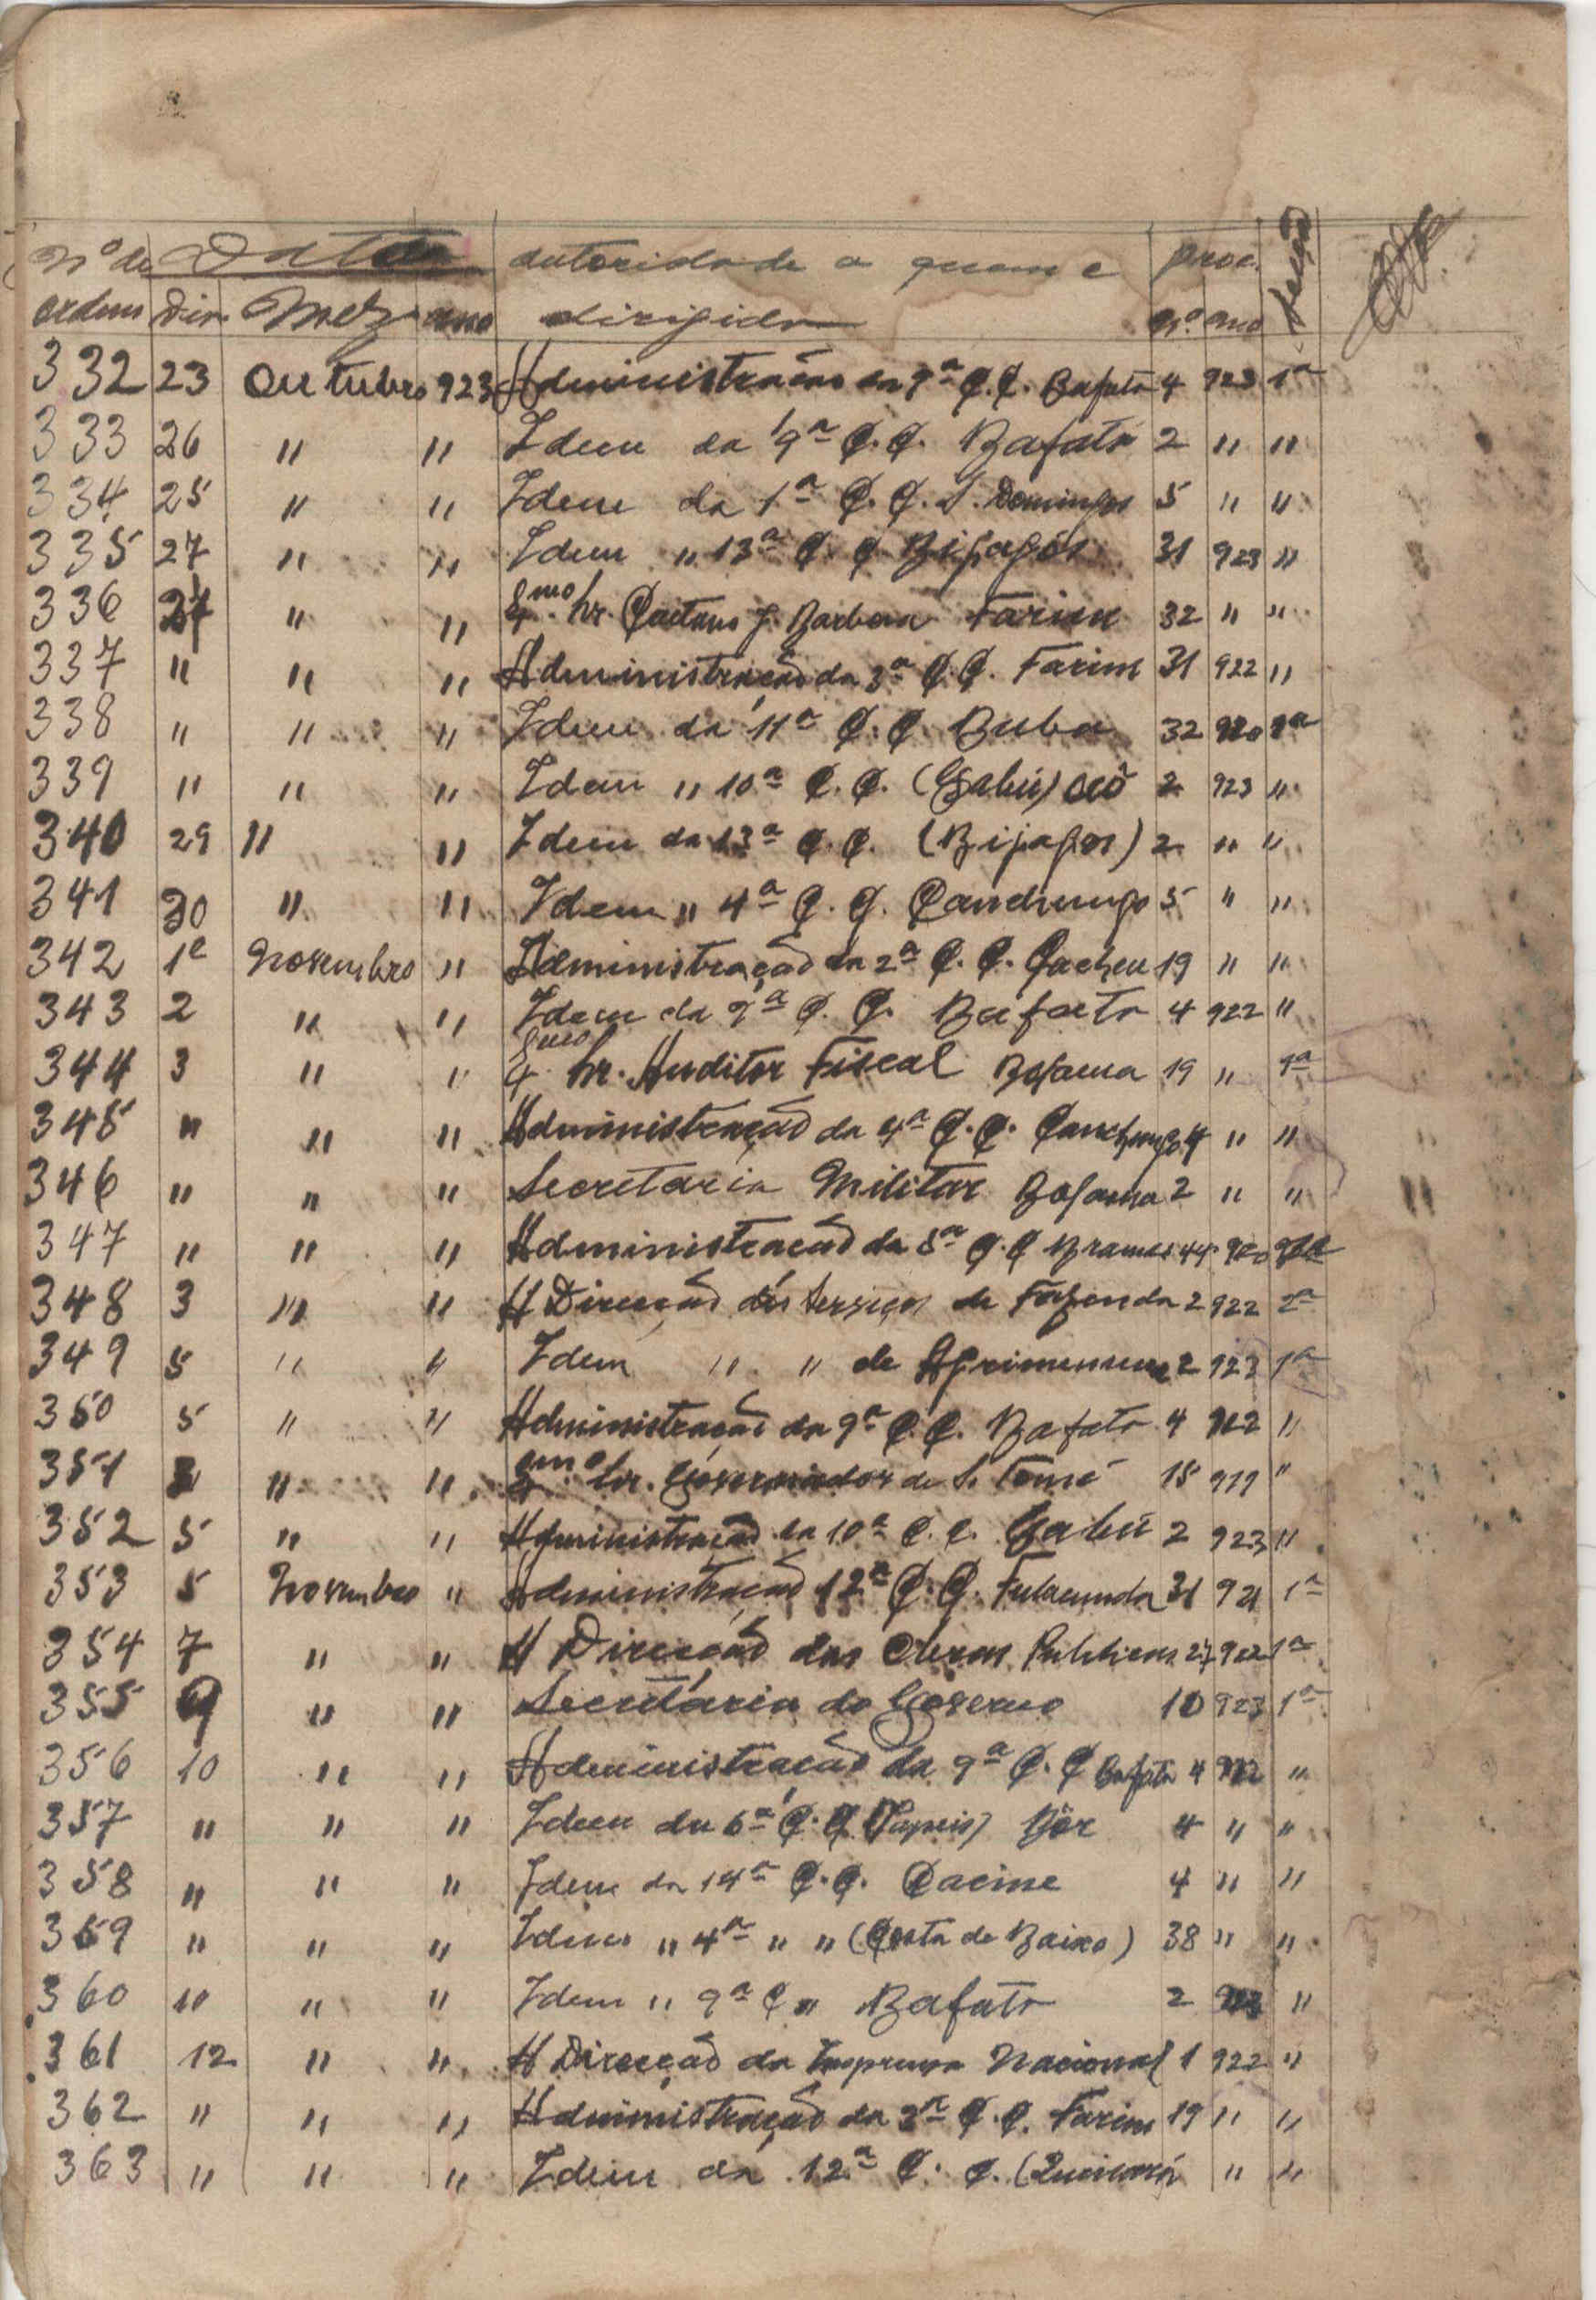 Nº de Data autoridade a quem é proc. secção
ordem Dia Mez ano dirigida nº ano
332 23 Outubro 923 Administração da 9ª C.C. Bafatá 4 923 1ª
333 26 " " Idem da 9ª C.C. Bafatá 2 " "
334 25 " " Idem da 1ª C.C. S. Domingos 5 " "
335 27 " " Idem " 13ª C.C. Bijagós 31 923 "
336 27 " " Exmo Sr. Caetano J. Barbosa Farim 32 " "
337 " " " Administração da 3ª C.C. Farim 31 922 "
338 " " " Idem da 11ª C.C. Buba 32 920 2ª
339 " " " Idem " 10ª C.C. (Gabú) 2 923 "
340 29 " " Idem da 13ª C.C. (Bijagos) 2 " "
341 30 " " Idem " 4ª C.C. Canchungo 5 " "
342 1º Novembro " Administração da 2ª C.C. Cacheu 19 " "
343 2 " " Idem da 9ª C.C. Bafatá 4 922 "
344 3 " " Exmo Sr. Auditor Fiscal Bolama 19 " 1ª
345 " " " Administração da 4ª C.C. Canchungo 4 " "
346 " " " Secretaria Militar Bolama 2 " "
347 " " " Administração da 5ª C.C. Brames 44 920
348 3 " " A Direcção dos Serviços de Fazenda 2 922 2ª
349 5 " " Idem " " de Agrimensura 2 923 1ª
350 5 " " Administração da 9ª C.C. Bafatá 4 922 "
351 " " Exmo Sr. Governador de S. Tomé 15 "
352 5 " " Administração da 10ª C.C. Gabú 2 923 "
353 5 Novembro " Administração 12ª C.C. Fulacunda 31 921 1ª
354 7 " " A Direcção das Obras Publicas 27 922 1ª
355 9 " " Secretaria do Governo 10 923 1ª
356 10 " " Administração da 9ª C.C. Bafatá 4 922 "
357 " " " Idem da 6ª C.C. (Papeis) Bôr 4 " "
358 " " " Idem da 14ª C.C. Cacine 4 " "
359 " " " Idem " 4ª " " (Costa de Baixo) 38 " "
360 10 " " Idem " 9ª C " Bafatá 2 923 "
361 12 " " A Direcção da Imprensa Nacional 1 922 "
362 " " " Administração da 3ª C.C. Farim 19 " "
363 " " " Idem da 12ª C.C. (Quinará " "